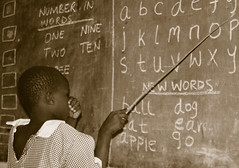 NUMBER IN
WORDS
ONE NINE
TWO TEN
a b c d e f
j k l m n o p
s t u v w x y z
NEW WORDS
ball dog
eat ean
apple go